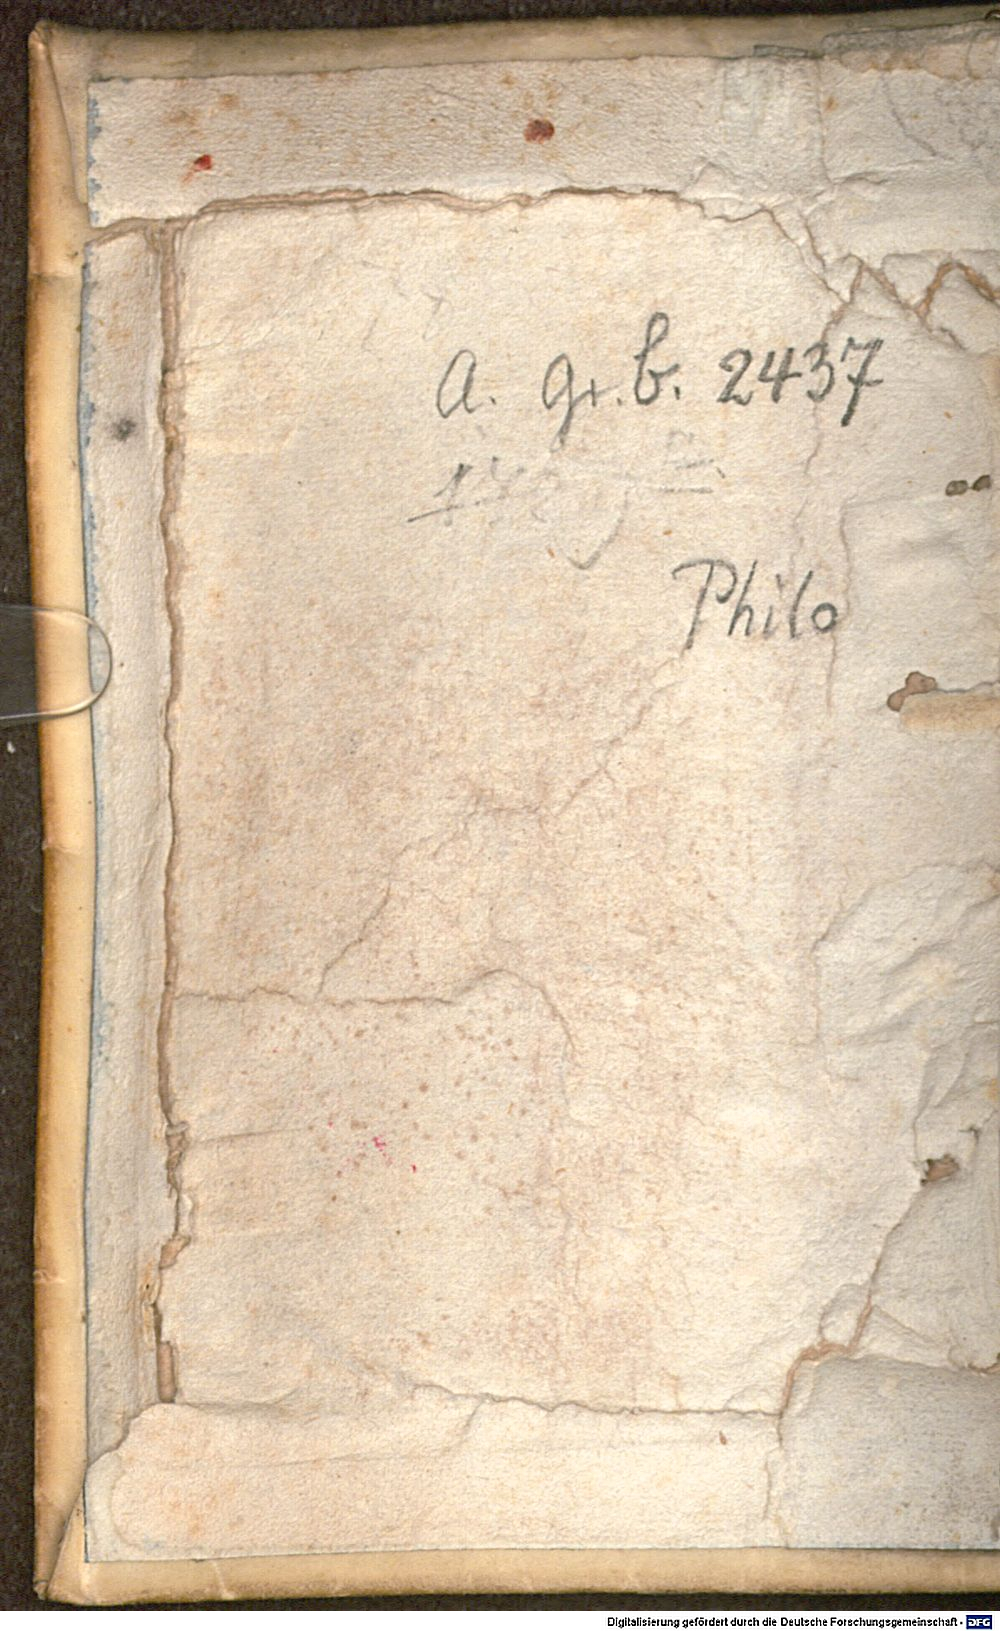 A. gr. b. 2437
Philo
Digitalisierung gefördert durch die Deutsche Forschungsgemeinschaft - DFG